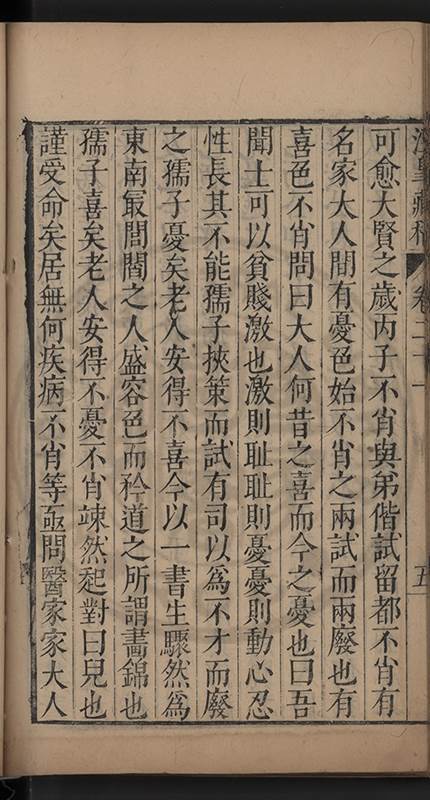 涇皐藏稿 卷二十一 五
可愈大賢之歲丙子不肖與弟偕試留都不肖有
名家大人間有憂色始不肖之兩試而兩廢也有
喜色不肖問曰大人何昔之喜而今之憂也曰吾
聞士可以貧賤激也激則耻耻則憂憂則動心忍
性長其不能孺子挾策而試有司以爲不才而廢
之孺子憂矣老人安得不喜今以一書生驟然爲
東南冣閭閻之人盛容色而矜道之所謂晝錦也
孺子喜矣老人安得不憂不肖竦然起對曰兒也
謹受命矣居無何疾病不肖等亟問醫家家大人